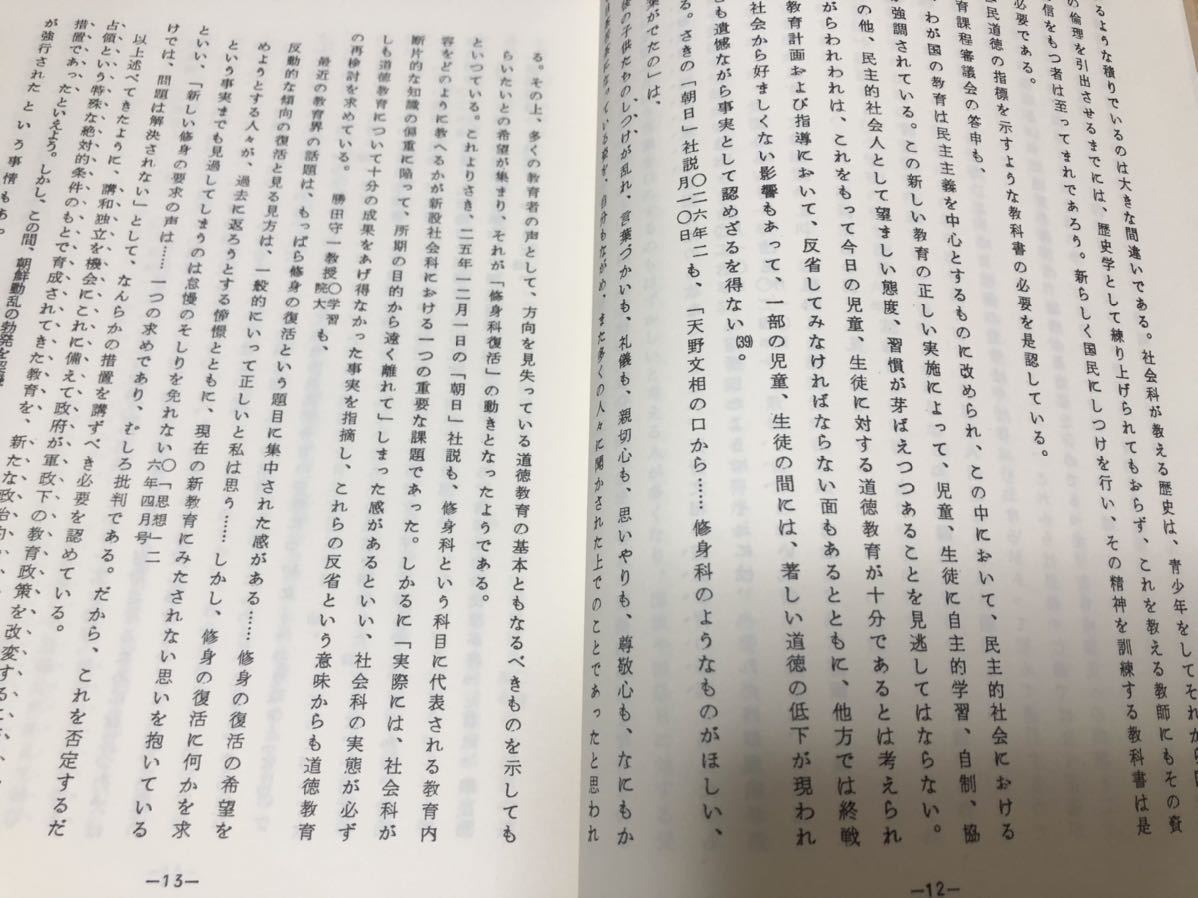 るような積りでいるのは大きな間違いである。社会科が教える歴史は、青少年をしてそれから
の倫理を引出させるまでには、歴史学として練り上げられてもおらず、これを教える教師にもその資
信をもつ者は至ってまれであろう。新らしく国民にしつけを行い、その精神を訓練する教科書は是
必要である。
育課程審議会の答申も、
民道徳の指標を示すような教科書の必要を是認している。
わが国の教育は民主主義を中心とするものに改められ、この中において、民主的社会における
が強調されている。この新しい教育の正しい実施によって、児童、生徒に自主的学習、自制、協
の他、民主的社会人として望ましい態度、習慣が芽ばえつつあることを見逃してはならない。
がらわれわれは、これをもって今日の児童、生徒に対する道徳教育が十分であるとは考えられ
教育計画および指導において、反省してみなければならない面もあるとともに、他方では終戦
社会から好ましくない影響もあって、一部の児童、生徒の間には、著しい道徳の低下が現われ
も遺憾ながら事実として認めざるを得ない(39)。
る。さきの「朝日」社説〇二六年二月一〇日も、「天野文相の口から……修身科のようなものがほしい、
葉がでたの」は、
後の子供たちのしつけが乱れ、言葉づかいも、礼儀も、親切心も、思いやりも、尊敬心も、なにもか
自分もながめ、また多くの人々に聞かされた上でのことであったと思われ
—12—
る。その上、多くの教育者の声として、方向を見失っている道徳教育の基本ともなるべきものを示しても
らいたいとの希望が集まり、それが「修身科復活」の動きとなったようである。
といっている。これよりさき、二五年一二月一日の「朝日」社説も、修身科という科目に代表される教育内
容をどのように教へるかが新設社会科における一つの重要な課題であった。しかるに「実際には、社会科が
断片的な知識の偏重に陥って、所期の目的から遠く離れて」しまった感があるといい、社会科の実態が必ず
しも道徳教育について十分の成果をあげ得なかった事実を指摘し、これらの反省という意味からも道徳教育
の再検討を求めている。　勝田守一教授〇学習院大も、
最近の教育界の話題は、もっぱら修身の復活という題目に集中された感がある……修身の復活の希望を
反動的な傾向の復活と見る見方は、一般的にいって正しいと私は思う……しかし、修身の復活に何かを求
めようとする人々が、過去に返ろうとする憧憬とともに、現在の新教育にみたされない思いを抱いている
という事実までも見過してしまうのは怠慢のそしりを免れない〇「思想」二六年四月号
といい、「新しい修身の要求の声は……一つの求めであり、むしろ批判である。だから、これを否定するだ
けでは、問題は解決されない」として、なんらかの措置を講ずべき必要を認めている。
以上述べてきたように、講和独立を機会にこれに備えて政府が軍政下の教育政策を改変する
占領という特殊な絶対的条件のもとで育成されてきた教育を、新たな政治的
措置であったといえよう。しかし、この間、朝鮮動乱の勃発を
が強行されたという事情もあっ
—13—